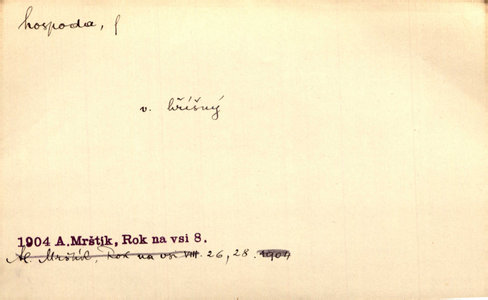 hospoda, f
v. hříšný
1904 A. Mrštík, Rok na vsi 8.
Al. Mrštík, Rok na vsi VIII. 26, 28. 1904